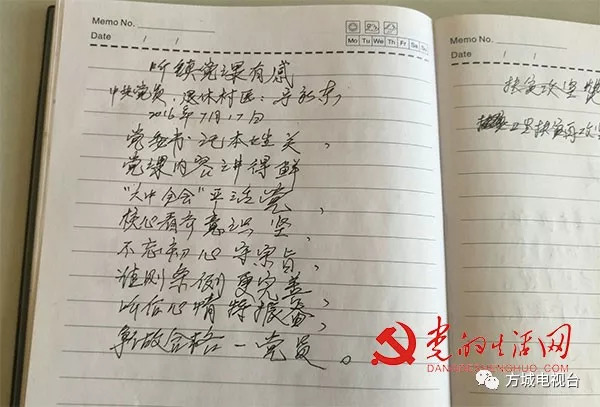 Memo No.
Date / /
Mo Tu We Th Fr Sa Su
听镇党课有感
中共党员、退休村医:
2016年7月17日
党委书记本姓关,
党课内容讲得鲜
核心看齐意识坚,
不忘初心守宗旨,
准则条例更完善,
争做合格一党员。
Memo No.
Date / /
扶贫攻坚
卫生扶贫再攻坚
党的生活网
DANGDESHENGHUO.COM
方城电视台